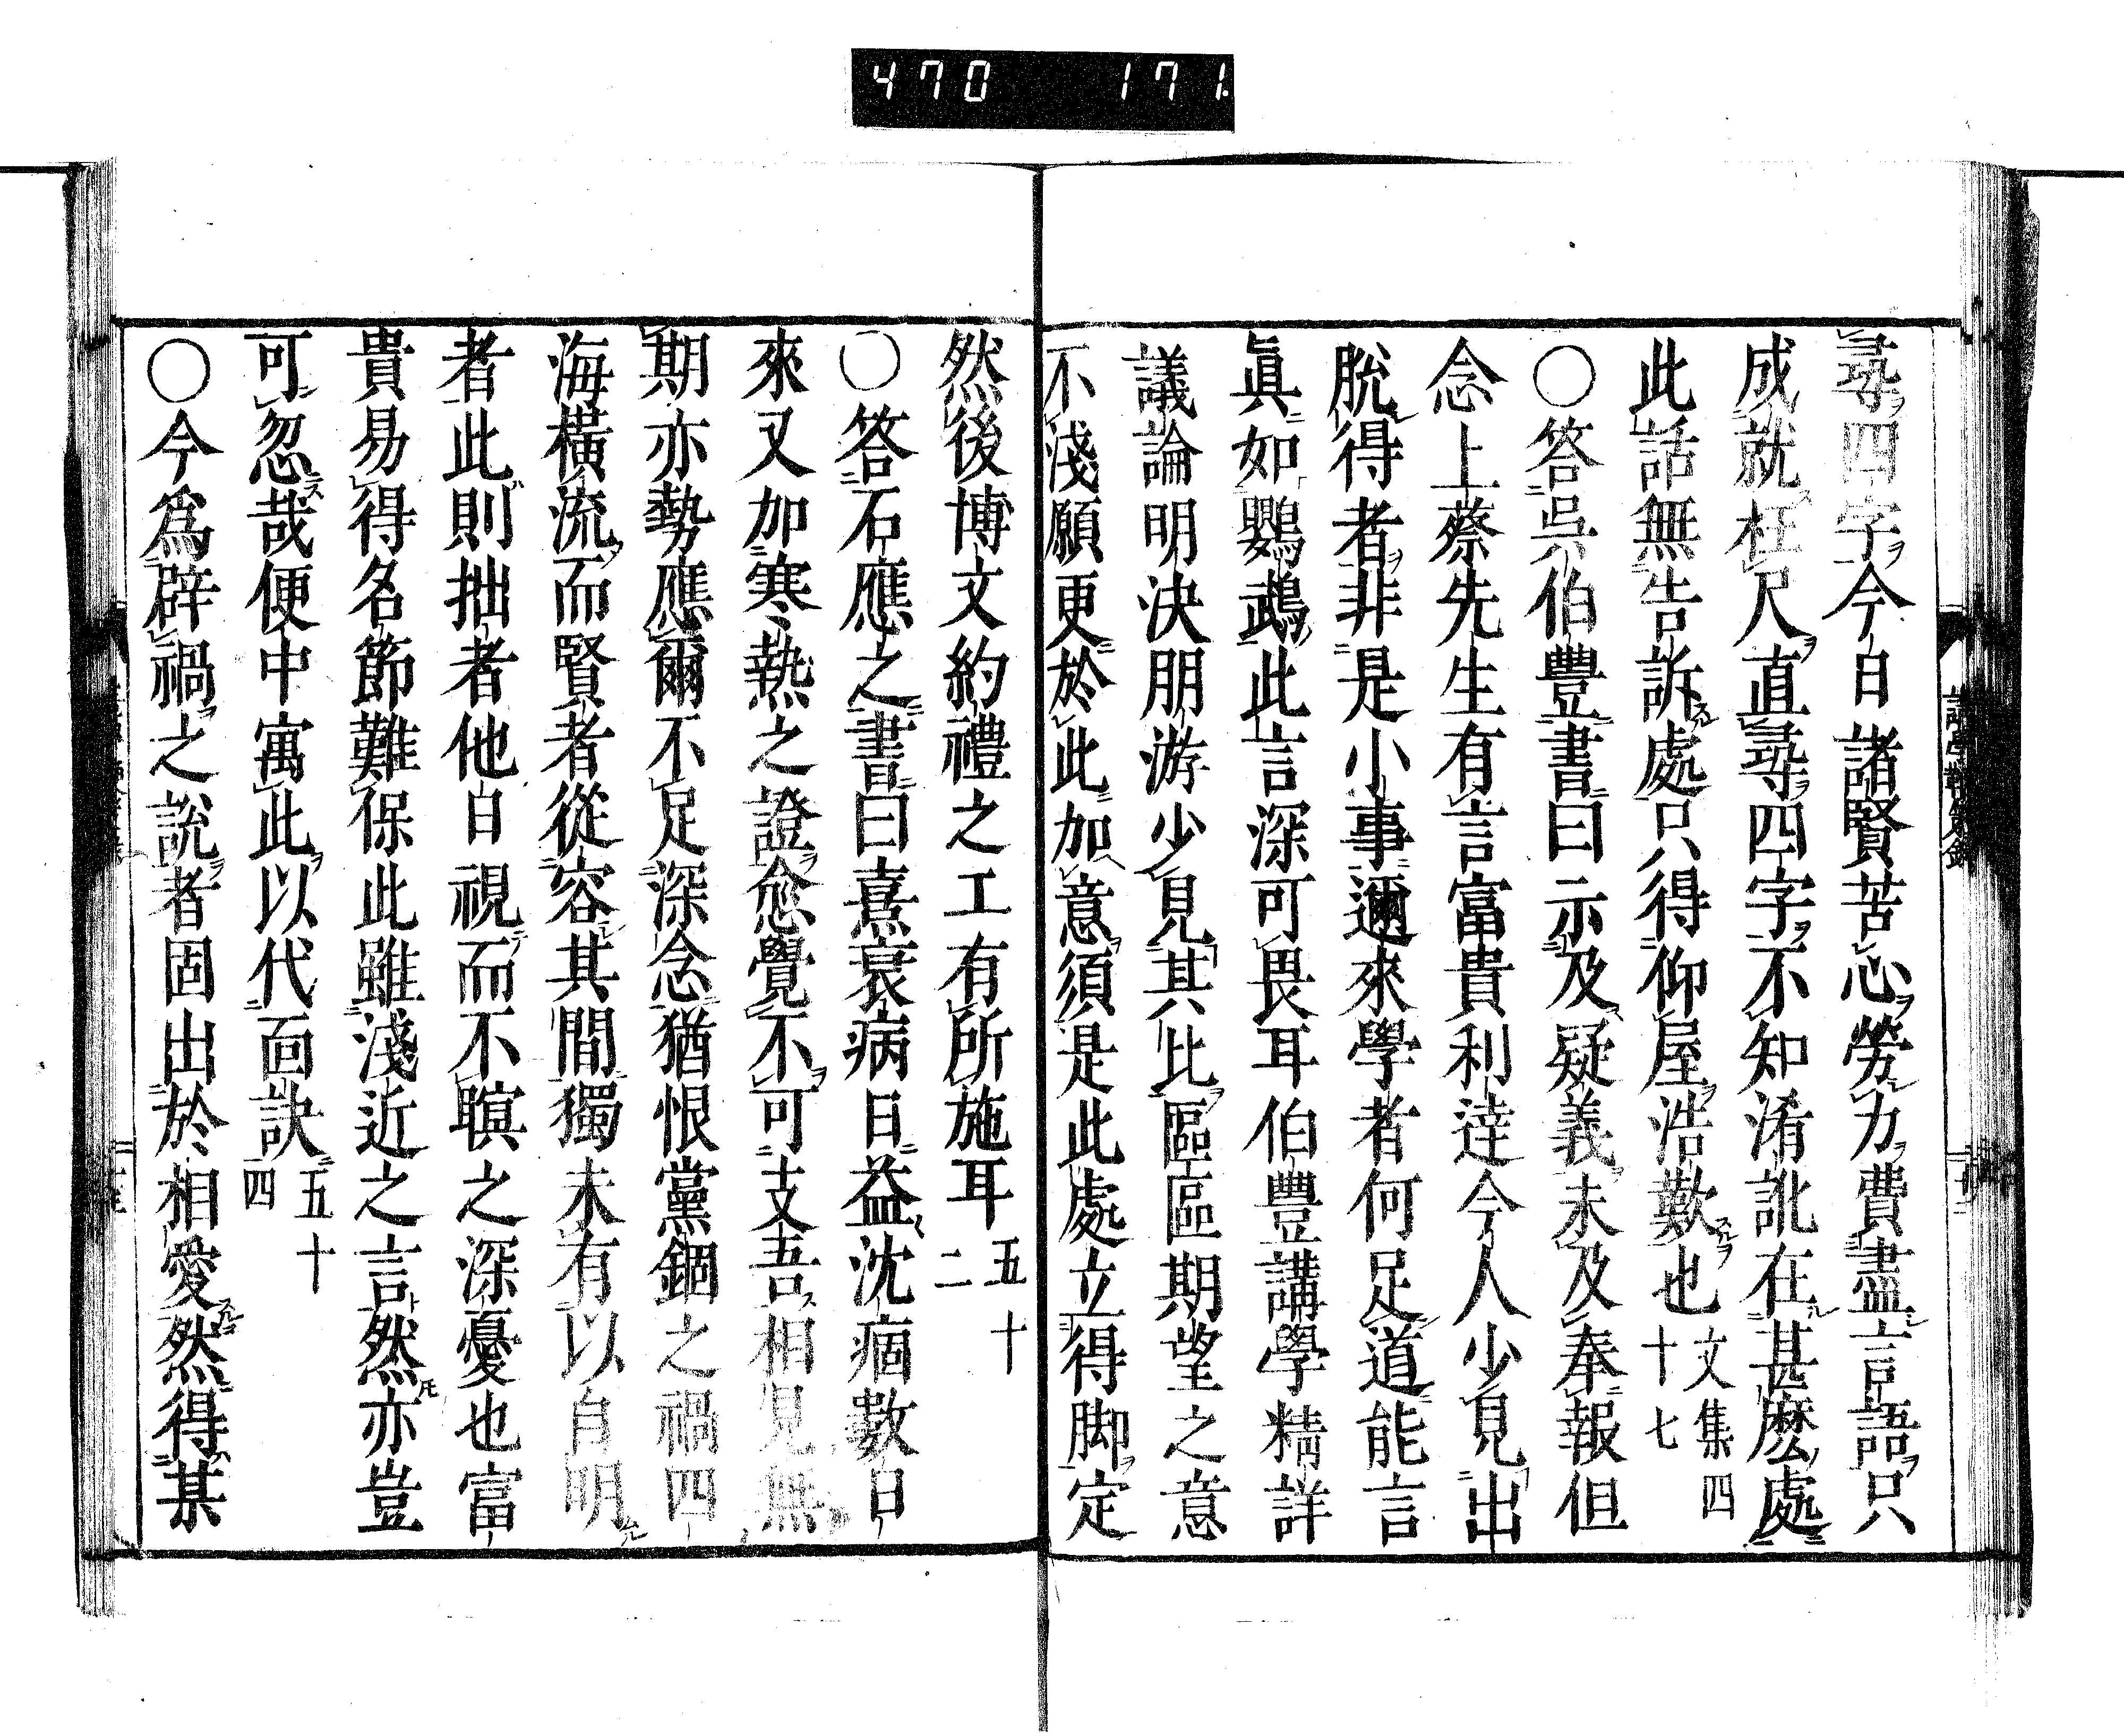 470 171
尋四字今日諸賢苦心勞力費盡言語只
成就枉尺直尋四字不知淆訛在甚麽處
此話無告訴處只得仰屋浩歎也文集四十七
○答呉伯豐書曰示及疑義未及奉報但
念上蔡先生有言富貴利達今人少見出
脫得者非是小事邇來學者何足道能言
眞如鸚鵡此言深可畏耳伯豐講學精詳
議論明決朋游少見其比區區期望之意
不淺願更於此加意須是此處立得脚定
然後博文約禮之工有所施耳五十二
○答石應之書曰熹衰病日益沈痼數日
來又加寒熱之證愈覺不可支吾相見無
期亦勢應爾不足深念猶恨黨錮之禍四
海橫流而賢者從容其間獨未有以自明
者此則拙者他日視而不瞑之深憂也富
貴易得名節難保此雖淺近之言然亦豈
可忽哉便中寓此以代面訣五十四
○今爲辟禍之說者固出於相愛然得某